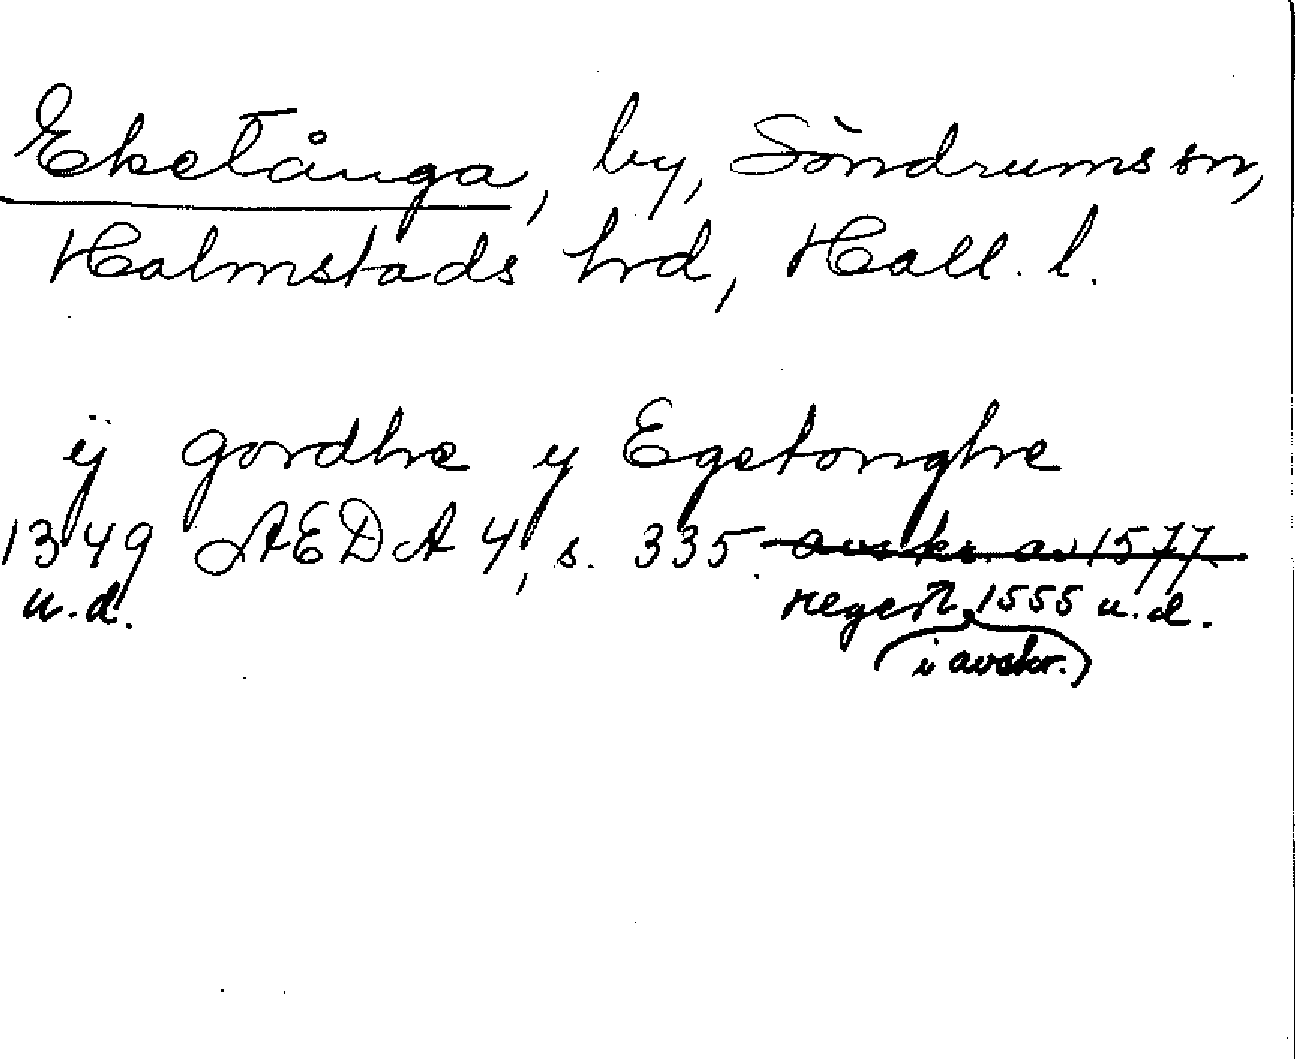 Eketånga, by, Söndrums sn,
Halmstads hrd, Hall. l.
ij gordhe y Egetonghe
1349 ÆDA 4, s. 335. avskr. av 1577.
u.d. regest 1555 u.d.
(i avskr.)